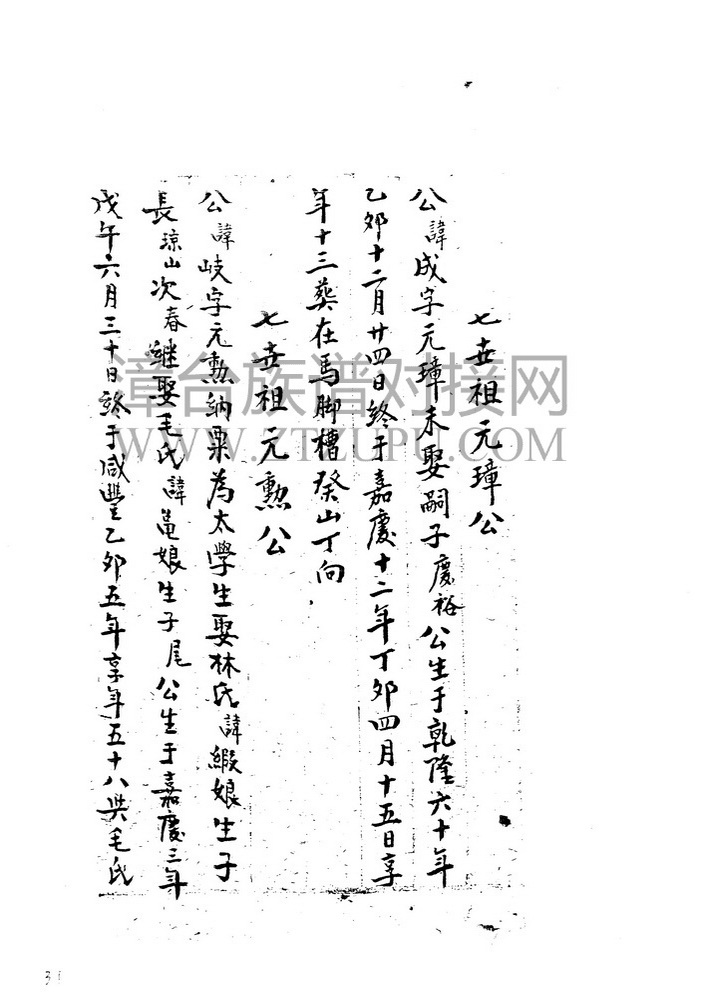 七世祖元璋公
公諱成字元璋未娶嗣子慶裕公生于乾隆六十年
乙卯十二月廿四日終于嘉慶十二年丁卯四月十五日享
年十三葬在馬脚槽癸山丁向
七世祖元勳公
公諱岐字元勳納粟為太學生娶林氏諱緞娘生子
長琼山次春継娶毛氏諱黽娘生子尾公生于嘉慶三年
戊午六月三十日終于咸豐乙卯五年享年五十八與毛氏
漳台族谱对接网
WWW.ZTZUPU.COM